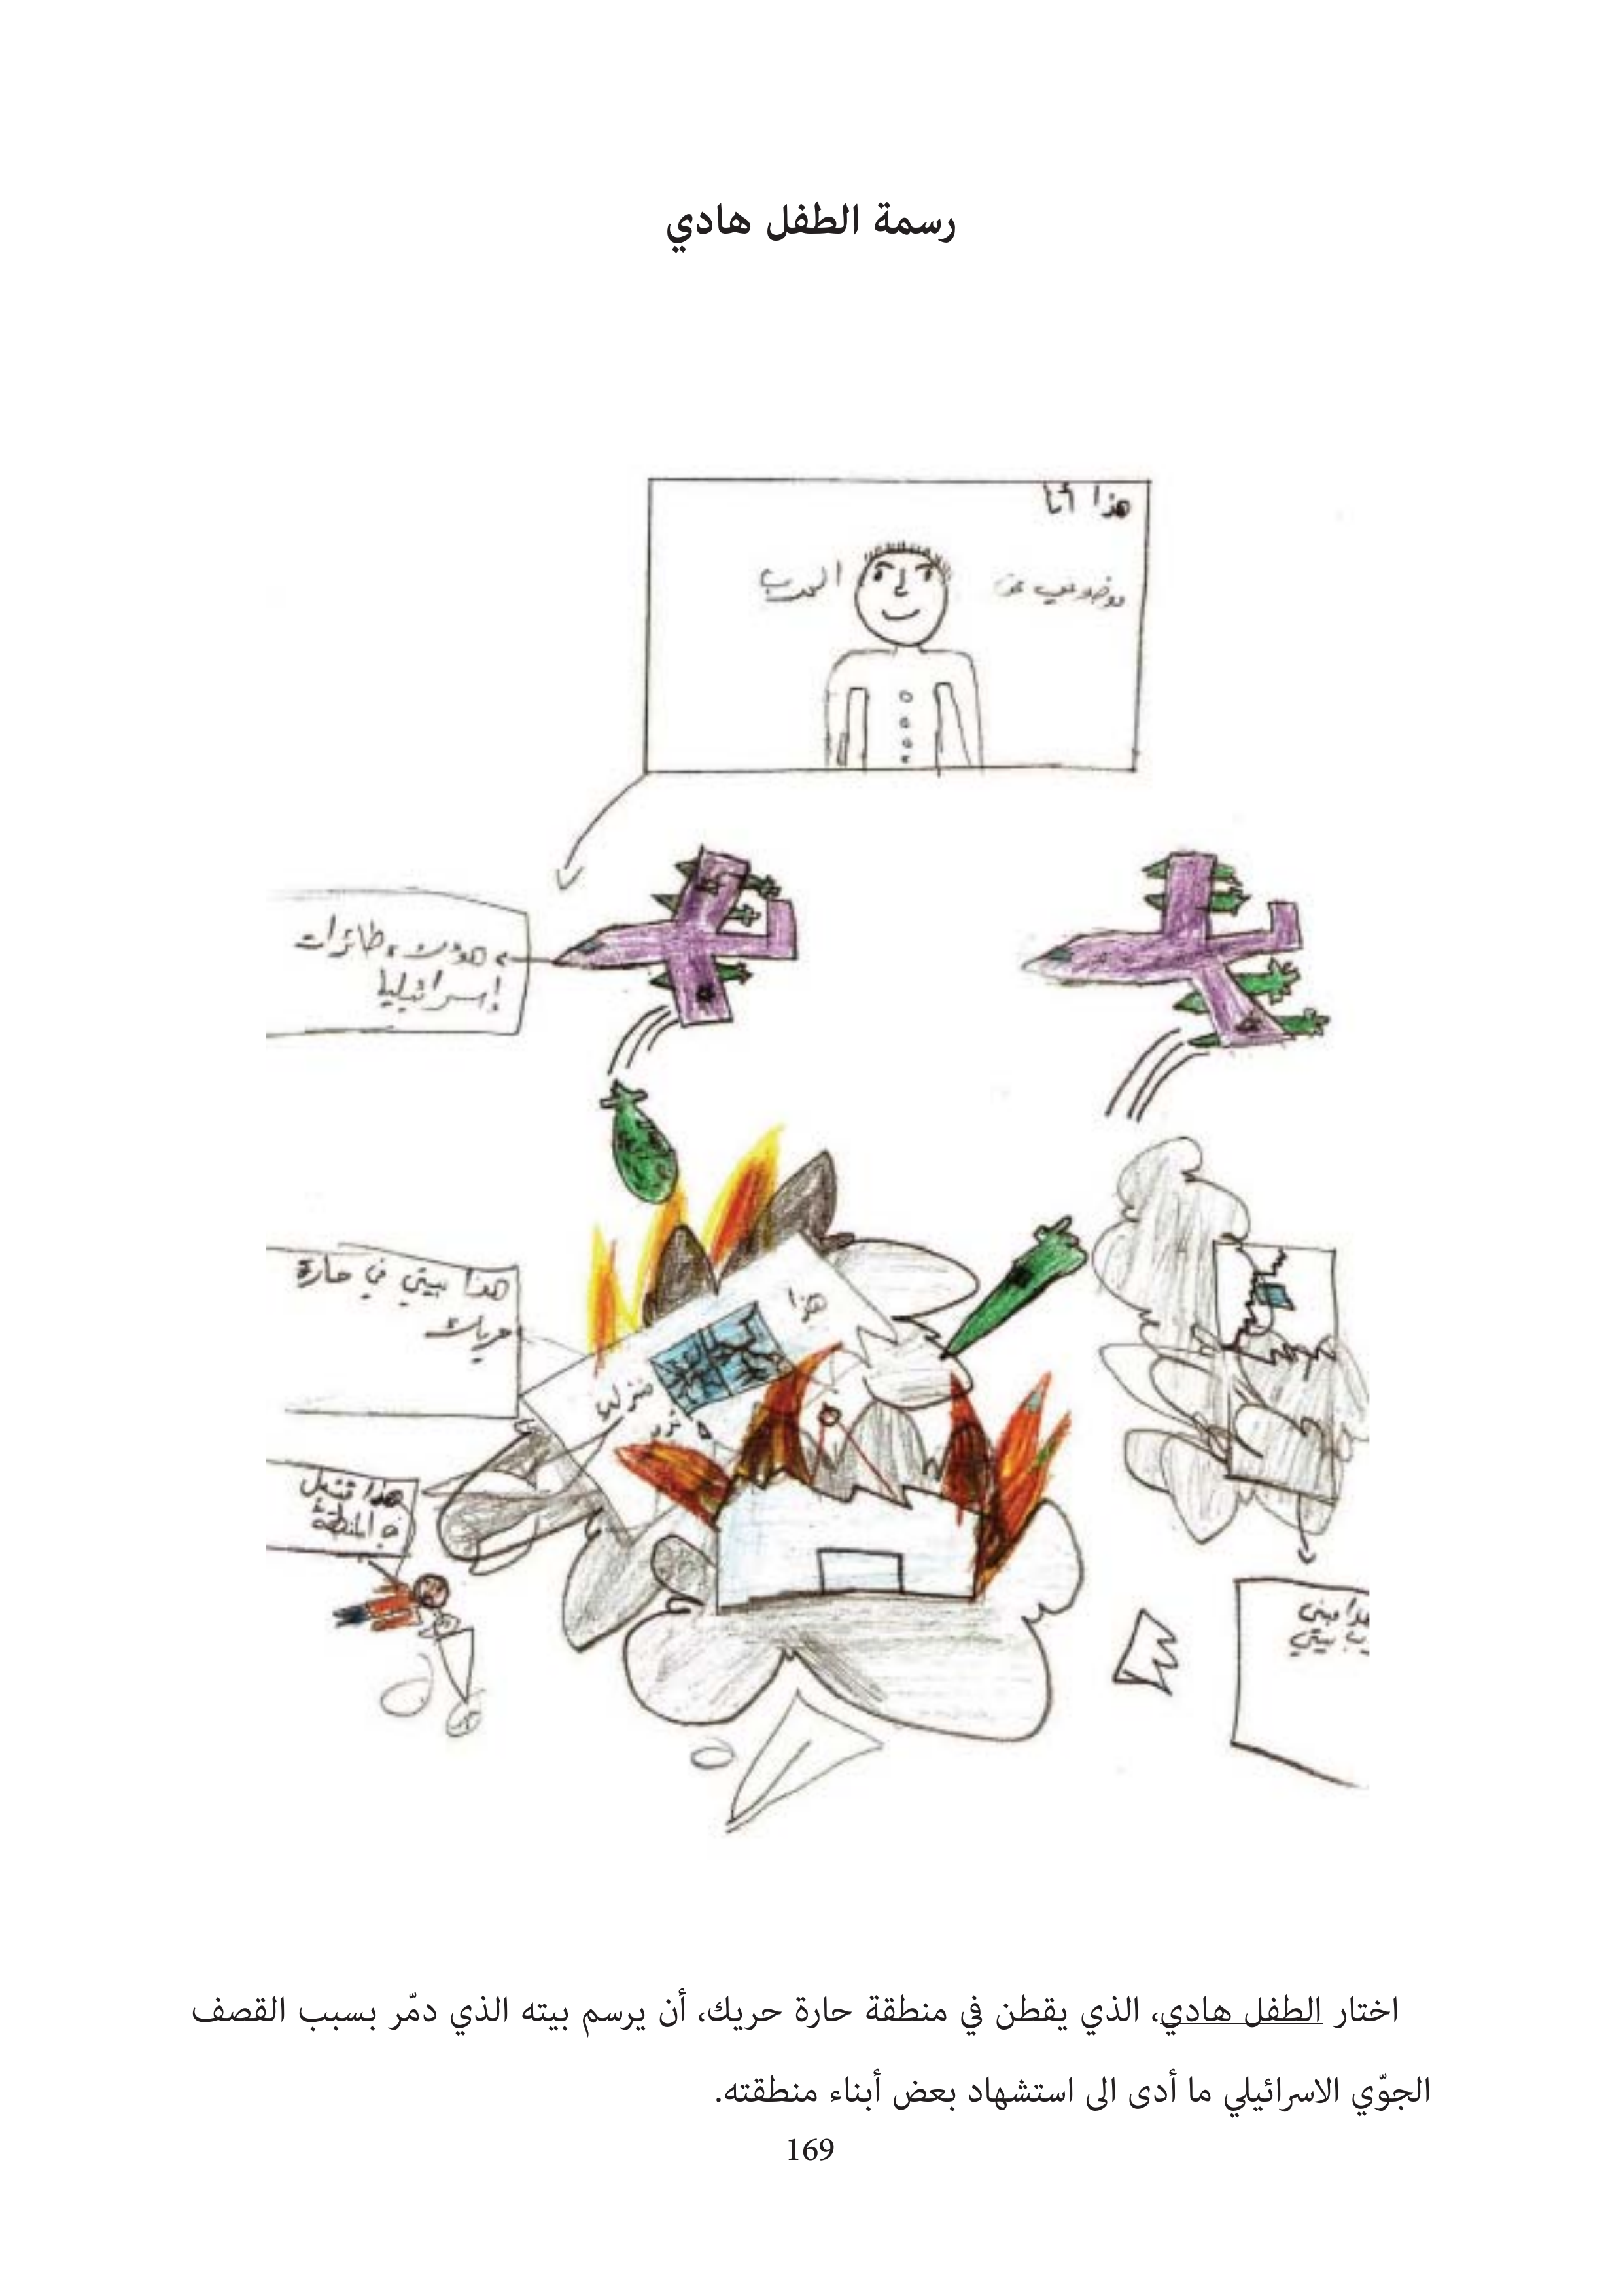 رسمة الطفل هادي
هذا أنا
موضوعي عن الحرب
هؤلاء طائرات
إسرائيليا
هذا بيتي في حارة
حريك
هذا
منزل
هذا قتيل
المنطقة
بيتي
اختار الطفل هادي، الذي يقطن في منطقة حارة حريك، أن يرسم بيته الذي دمّر بسبب القصف
الجوّي الاسرائيلي ما أدى الى استشهاد بعض أبناء منطقته.
169